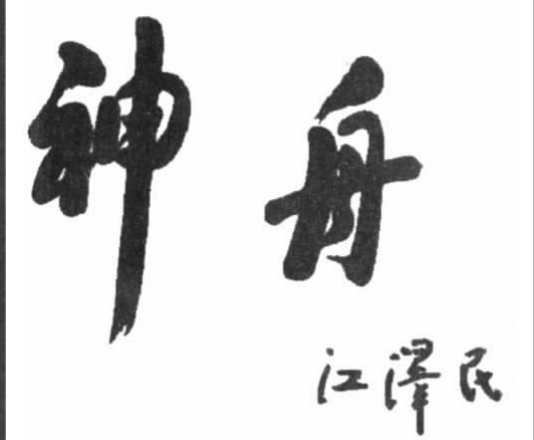 神舟
江泽民